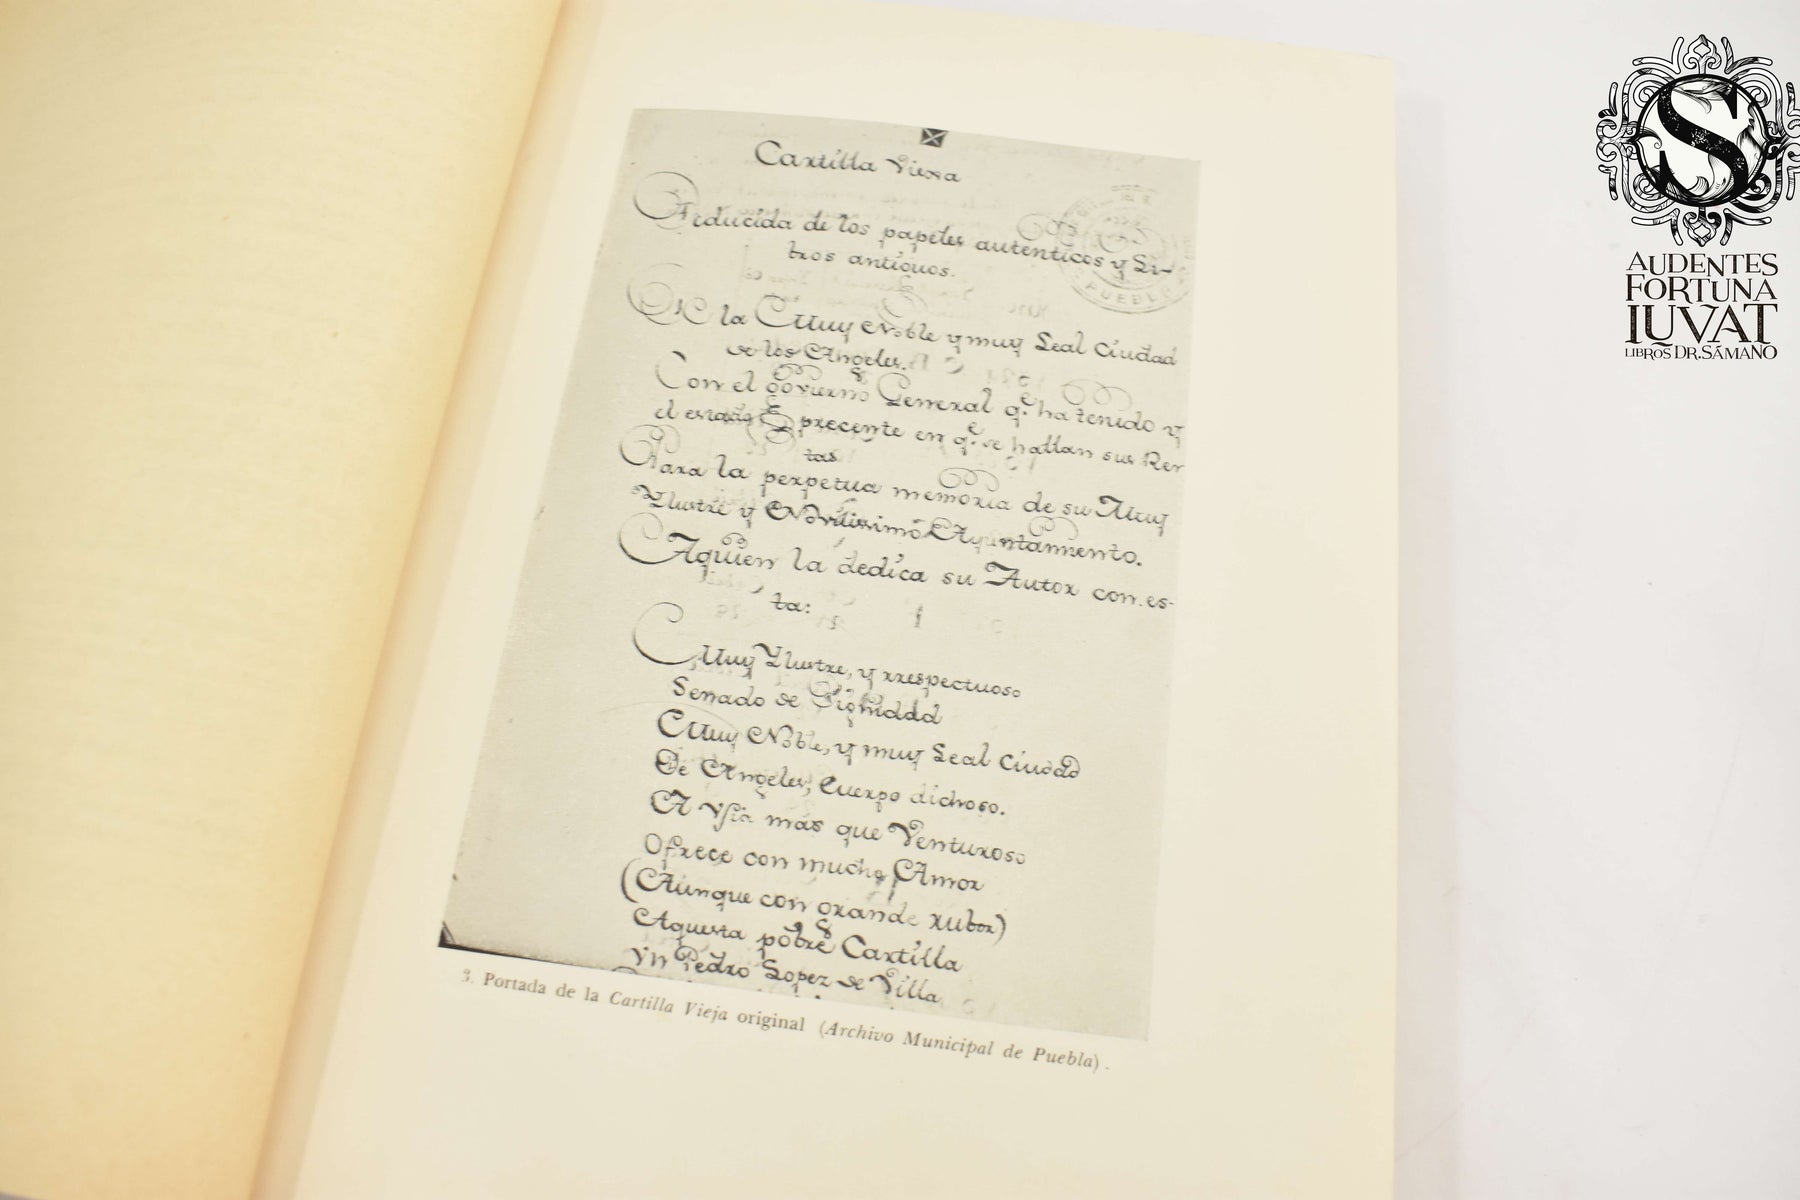 Cartilla Viexa
Reducida de los papeles autenticos y Li-
bros antiguos.
De la Muy Noble y muy Leal Ciudad
de los Angeles.
Con el govierno General q.e ha tenido y
el estado precente en q.e se hallan sus Ren
tas
Para la perpetua memoria de su Muy
Ylustre y Novilissimo Ayuntamiento.
Aquien la dedica su Autor con es-
ta:
Muy Ylustre, y rrespectuoso
Senado de Dignidad
Muy Noble, y muy Leal Ciudad
De Angeles, Cuerpo dichoso.
A Vsia más que Venturoso
Ofrece con mucho Amor
(Aunque con grande rubor)
Aquesta pobre Cartilla
Vn Pedro Lopez de Villa
PUEBLA
3. Portada de la Cartilla Vieja original (Archivo Municipal de Puebla).
S
AUDENTES
FORTUNA
IUVAT
LIBROS DR. SÁMANO